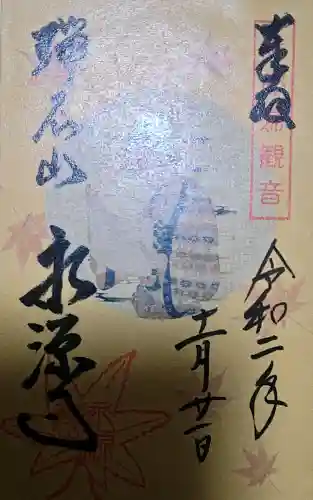 奉拝
観音
令和二年
十一月廿一日
瑞石山
永源寺